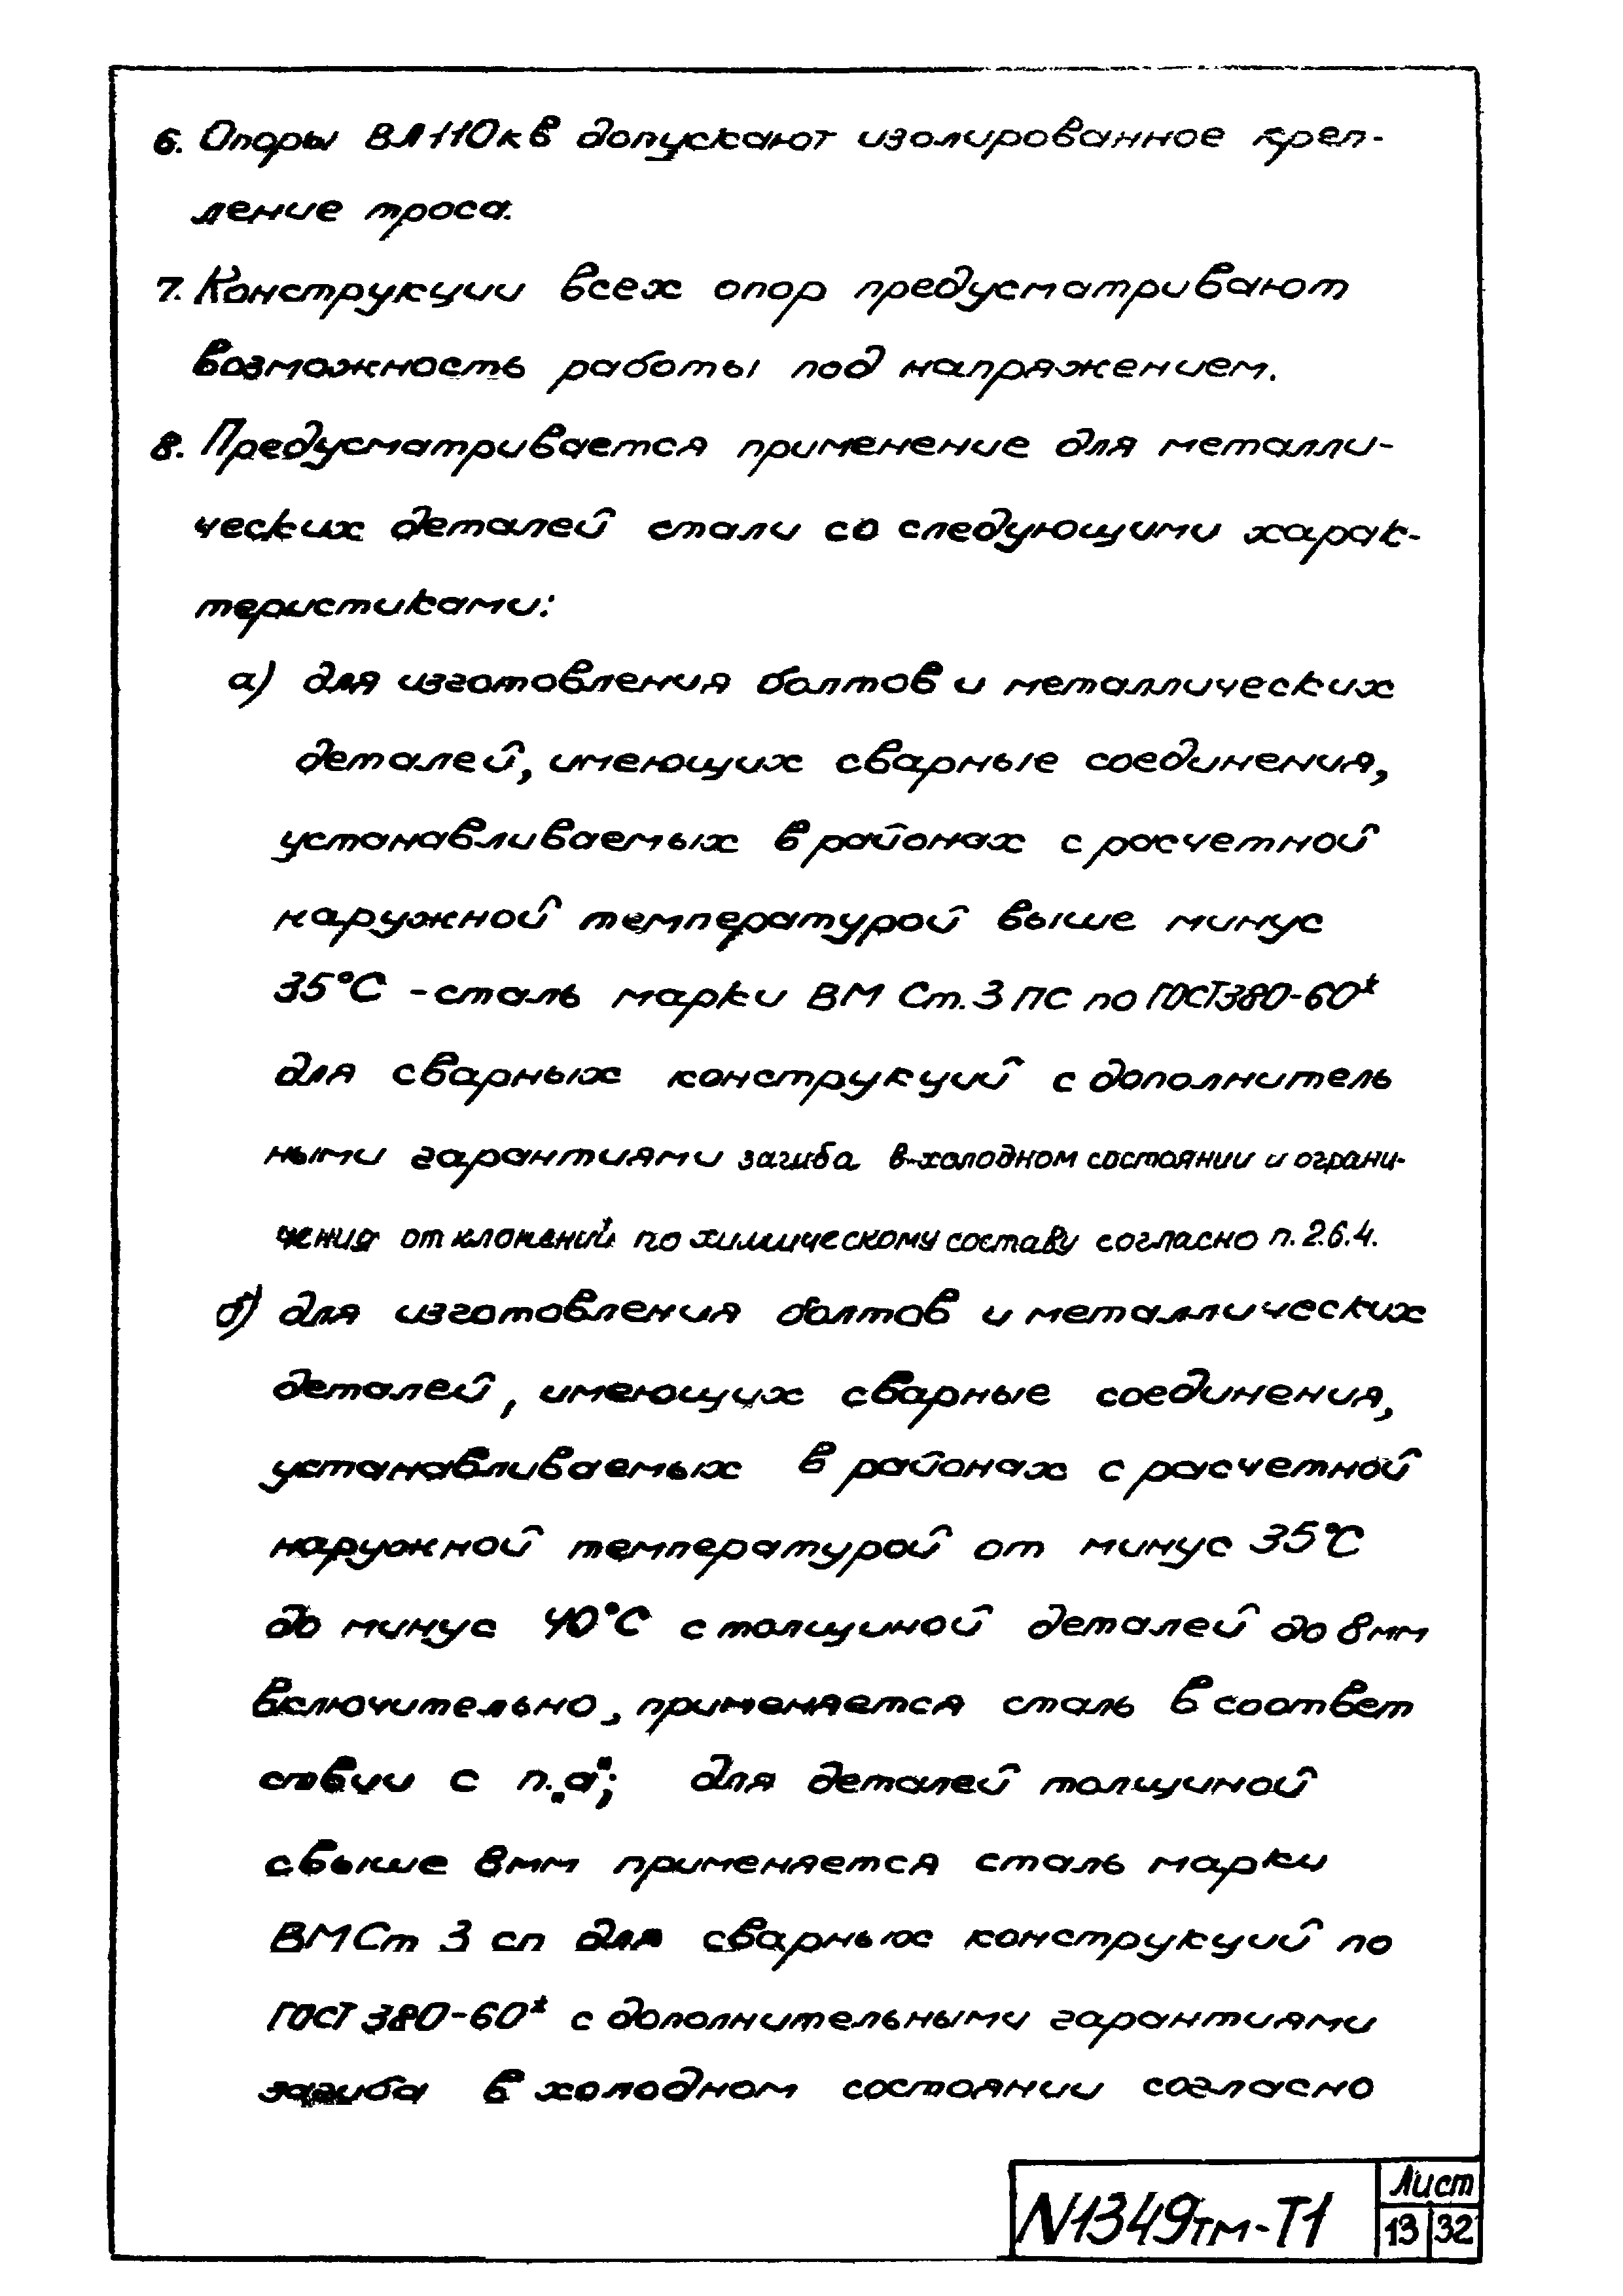 6. Опоры ВЛ 110 кВ допускают изолированное креп-
ление троса.
7. Конструкции всех опор предусматривают
возможность работы под напряжением.
8. Предусматривается применение для металли-
ческих деталей стали со следующими харак-
теристиками:
а) для изготовления болтов и металлических
деталей, имеющих сварные соединения,
устанавливаемых в районах с расчетной
наружной температурой выше минус
35°С - сталь марки ВМ Ст. 3 ПС по ГОСТ 380-60*
для сварных конструкций с дополнитель
ными гарантиями загиба в холодном состоянии и ограни-
чения отклонений по химическому составу согласно п. 2.6.4.
б) для изготовления болтов и металлических
деталей, имеющих сварные соединения,
устанавливаемых в районах с расчетной
наружной температурой от минус 35°С
до минус 40°С с толщиной деталей до 8мм
включительно, применяется сталь в соответ
ствии с п. „а"; для деталей толщиной
свыше 8мм применяется сталь марки
ВМСт 3 сп для сварных конструкций по
ГОСТ 380-60* с дополнительными гарантиями
загиба в холодном состоянии согласно
N1349тм-Т1
Лист
13 32